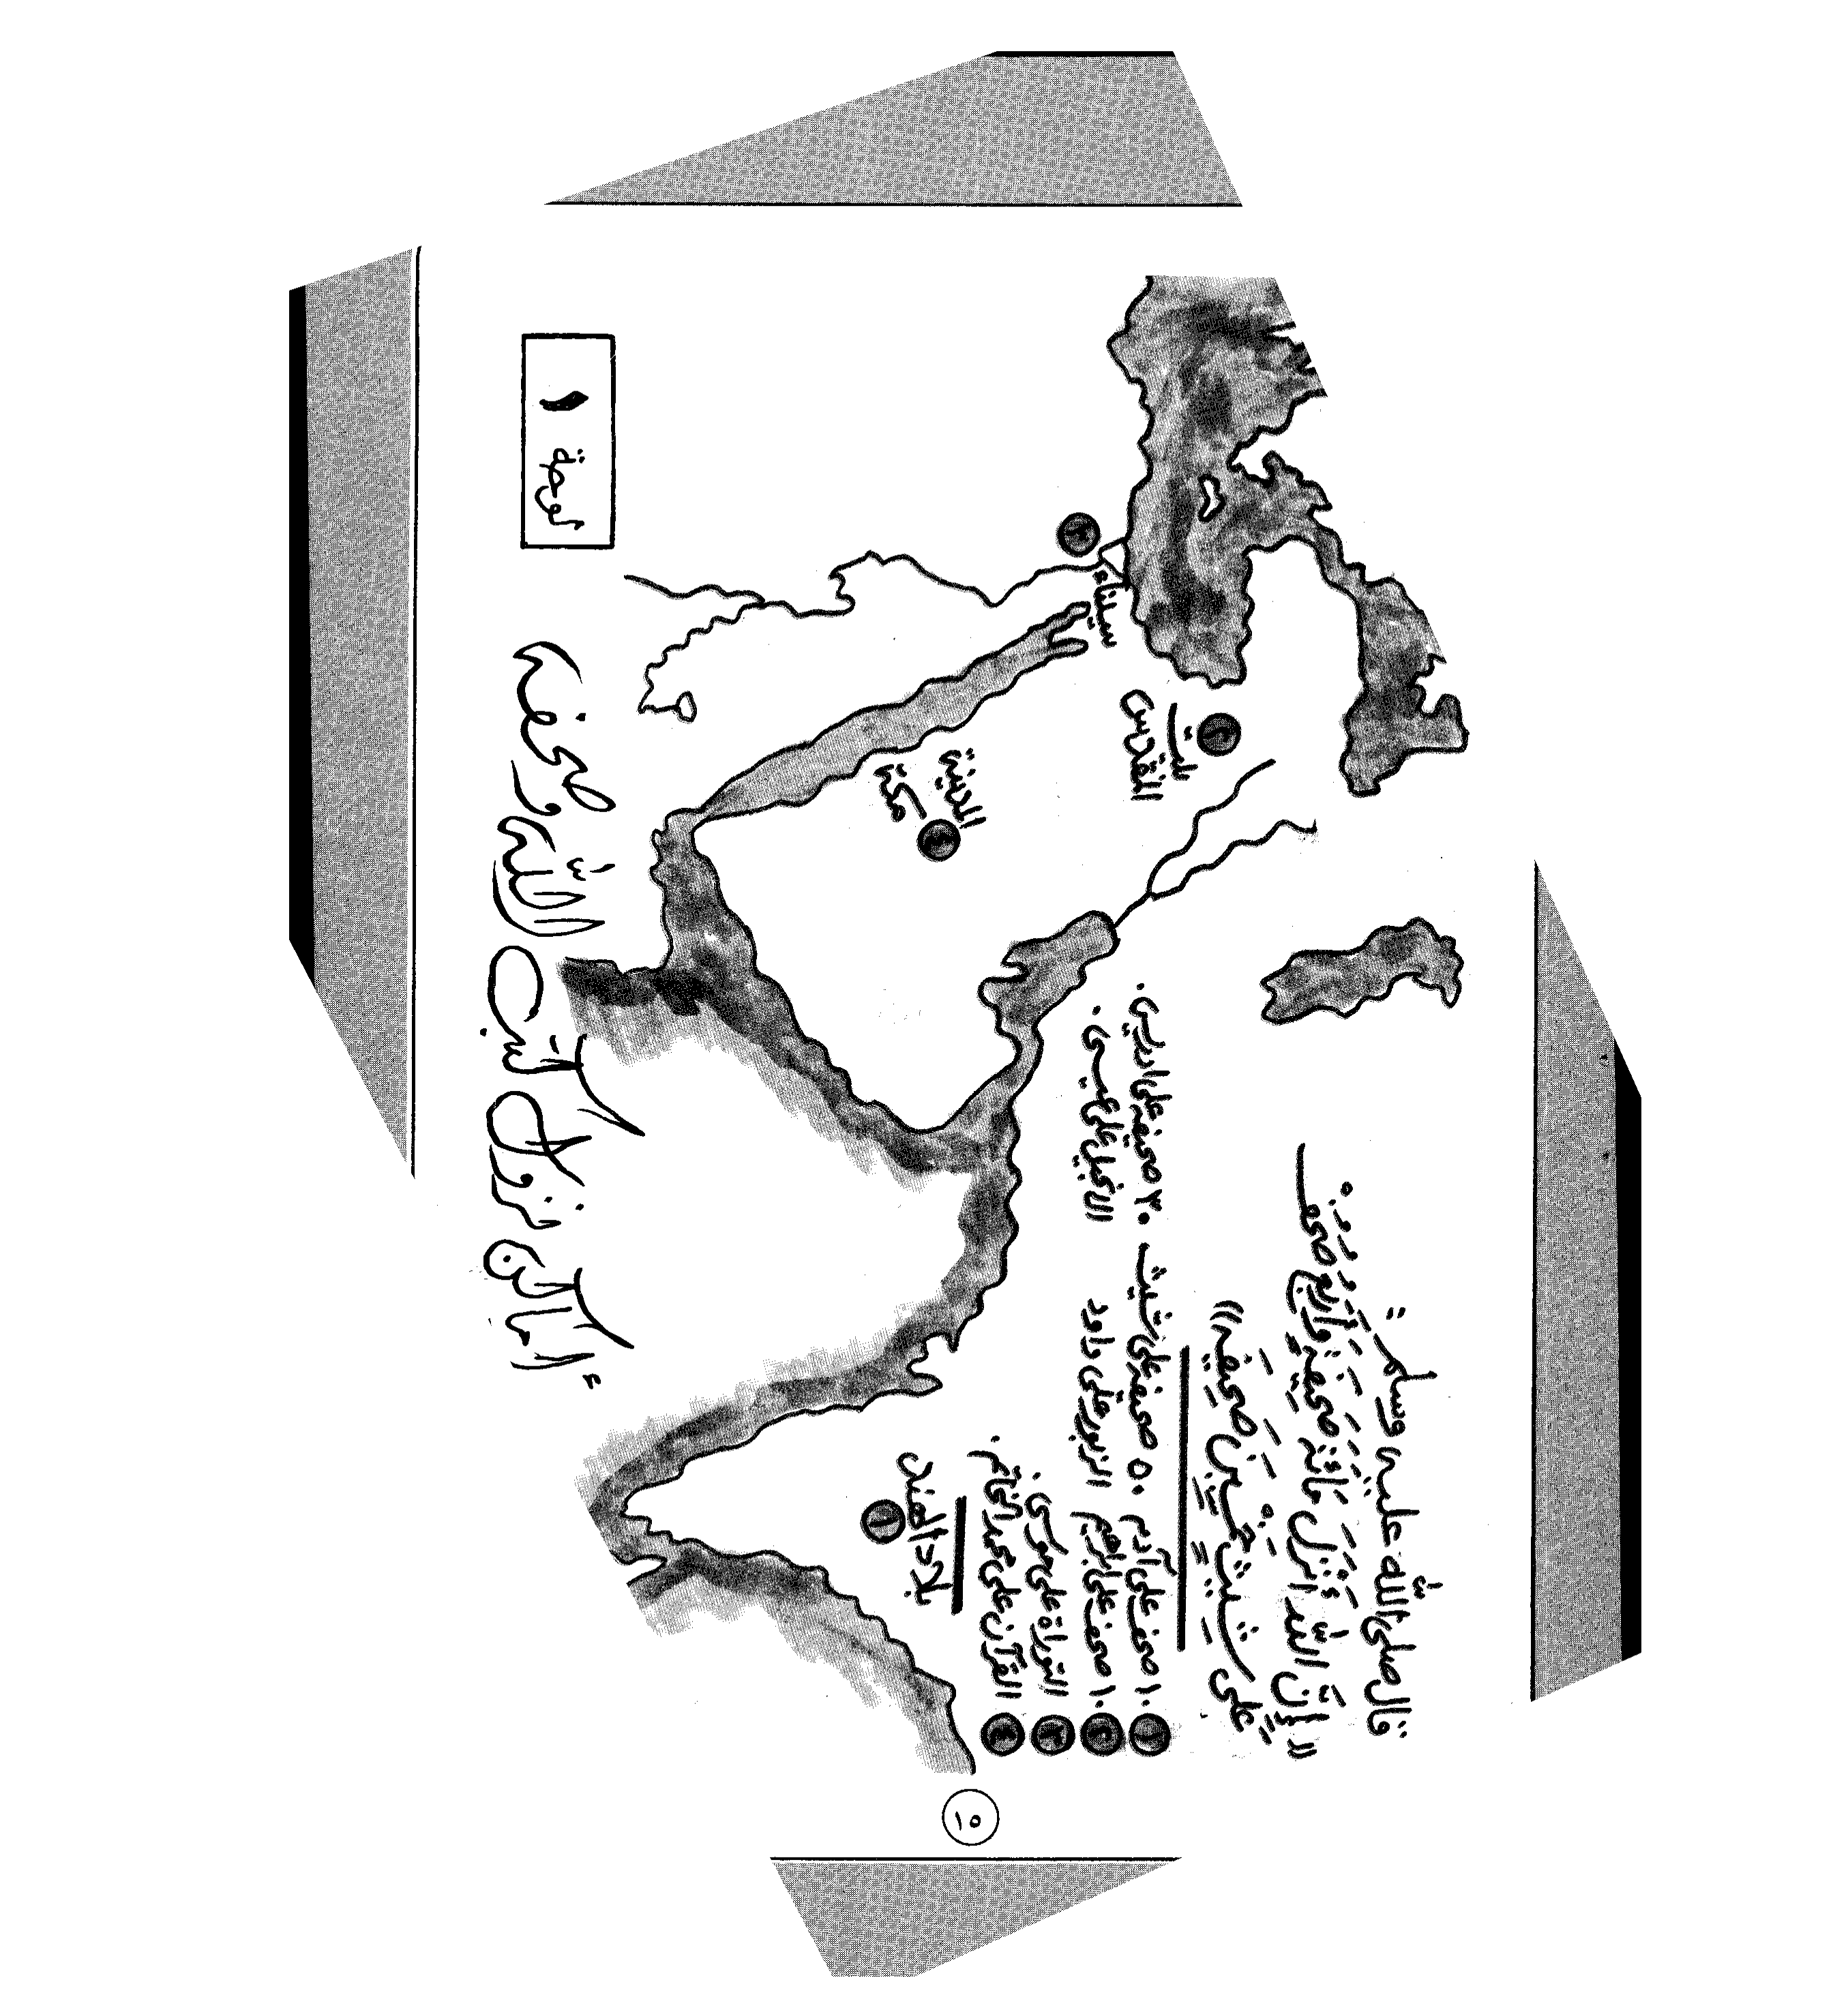 قال صلى الله عليه وسلم :
« إن الله أنزل مائة صحيفة وأربع صحف
على شيث خمسين صحيفة »
١ ١٠ صحف على آدم ٥٠ صحيفة على شيث ٣٠ صحيفة على ادريس .
٢ ١٠ صحف على ابراهيم الزبور على داود الانجيل على عيسى .
٣ التوراة على موسى .
٤ القرآن على محمد الخاتم .
٢ بيت
المقدس
سيناء
٣
المدينة
٤ مكة
بلاد الهند
١
أماكن نزول كتب الله وصحفه
لوحة ١
٥